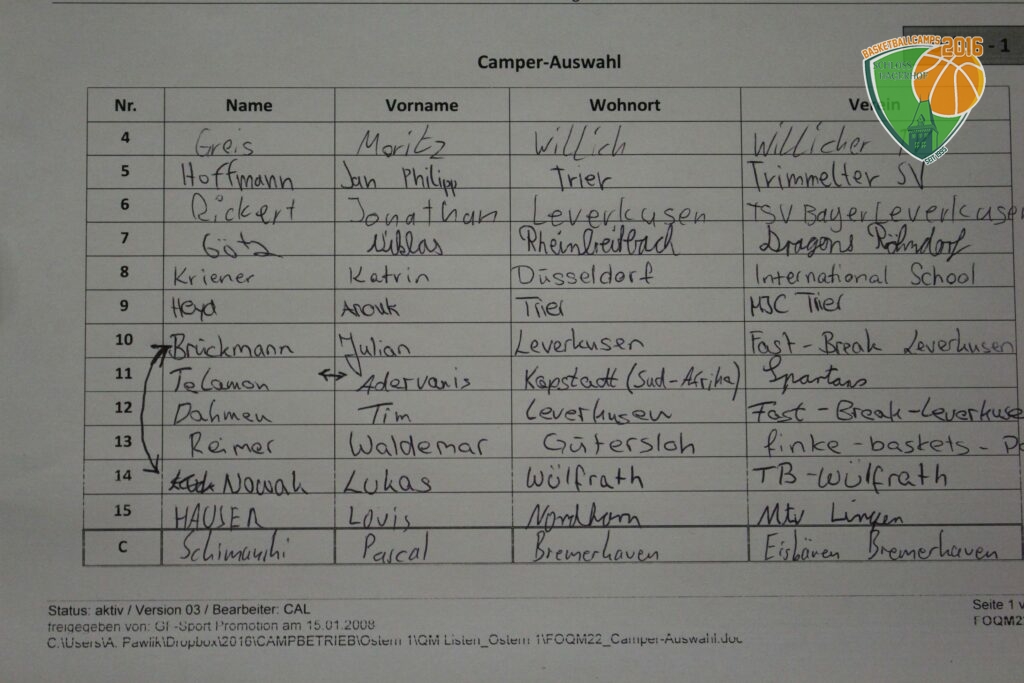 Camper-Auswahl
BASKETBALLCAMPS 2016 - 1
SCHLOSS HAGERHOF
SEIT 1995
Nr. Name Vorname Wohnort Verein
4 Greis Moritz Willich Willicher
5 Hoffmann Jan Philipp Trier Trimmelter SV
6 Rickert Jonathan Leverkusen TSV Bayer Leverkusen
7 Götz Niklas Rheinbreitbach Dragons Röhndorf
8 Kriener Katrin Düsseldorf International School
9 Heyd Anouk Trier MJC Trier
10 Brückmann Julian Leverkusen Fast-Break Leverkusen
11 Telamon ↔ Adervanis Kapstadt (Sud-Afrika) Spartans
12 Dahmen Tim Leverkusen Fast-Break-Leverkuse
13 Reimer Waldemar Gütersloh finke-baskets-Pa
14 Nowak Lukas Wülfrath TB-Wülfrath
15 HAUSER Louis Nordhorn Mtv Lingen
C Schimanski Pascal Bremerhaven Eisbären Bremerhaven
Status: aktiv / Version 03 / Bearbeiter: CAL Seite 1 v
freigegeben von: GF-Sport Promotion am 15.01.2008 FOQM22
C:\Users\A. Pawlik\Dropbox\2016\CAMPBETRIEB\Ostern 1\QM Listen_Ostern 1\FOQM22_Camper-Auswahl.doc